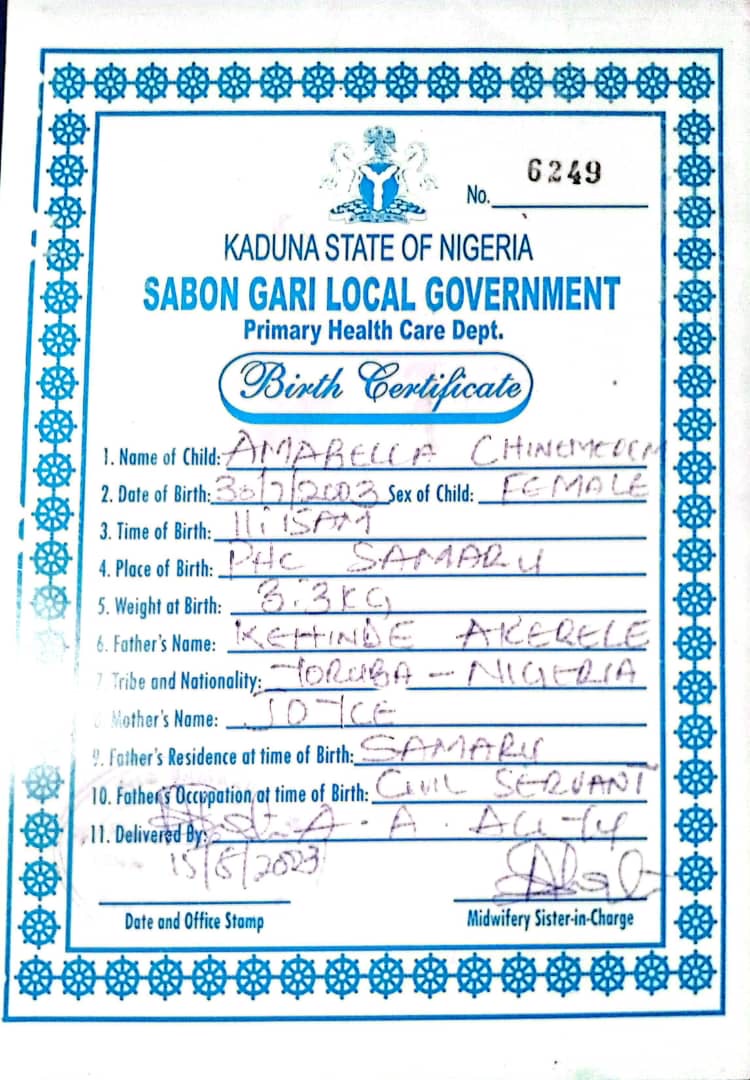 No. 6249
KADUNA STATE OF NIGERIA
SABON GARI LOCAL GOVERNMENT
Primary Health Care Dept.
Birth Certificate
1. Name of Child: AMABELLA CHINEMEDEM
2. Date of Birth: 30/7/2003 Sex of Child: FEMALE
3. Time of Birth: 11:15AM
4. Place of Birth: PHC SAMARU
5. Weight at Birth: 3.3KG
6. Father's Name: KEHINDE AKERELE
7. Tribe and Nationality: YORUBA - NIGERIA
8. Mother's Name: JOYCE
9. Father's Residence at time of Birth: SAMARU
10. Father's Occupation at time of Birth: CIVIL SERVANT
11. Delivered By: A. A.
Date and Office Stamp
Midwifery Sister-in-Charge